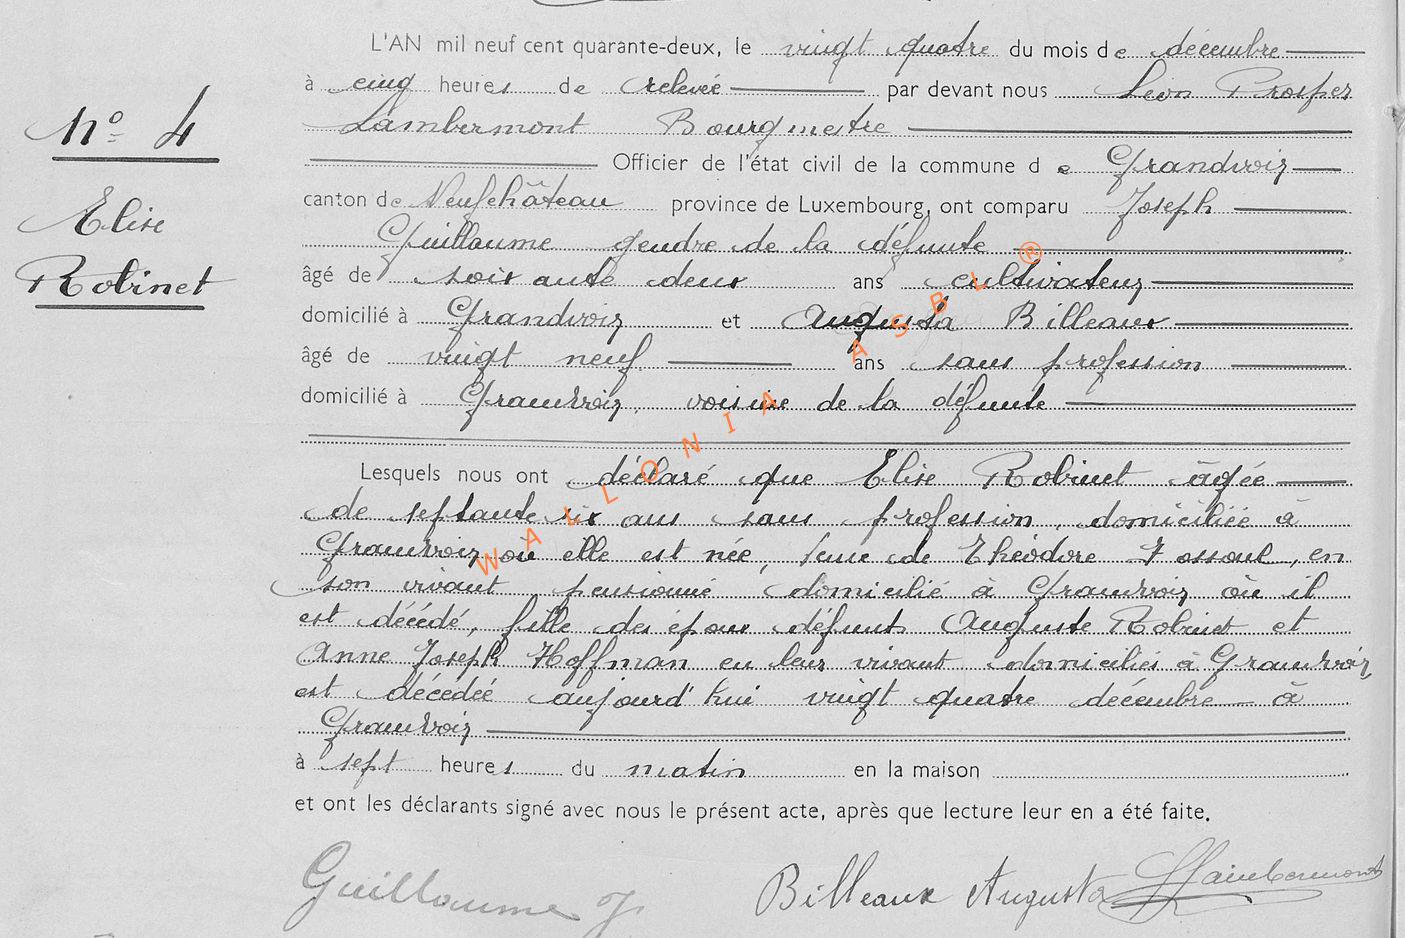 L'AN mil neuf cent quarante-deux, le vingt quatre du mois de décembre
à cinq heures de relevée par devant nous Léon Prosper
Nº 4
Lambermont Bourgmestre
Officier de l'état civil de la commune de Grandvoir
Elise
canton de Neufchâteau province de Luxembourg, ont comparu Joseph
Guillaume gendre de la défunte
Robinet
âgé de soixante deux ans cultivateur
domicilié à Grandvoir et Augusta Billeaux
âgé de vingt neuf ans sans profession
domicilié à Grandvoir, voisine de la défunte
Lesquels nous ont déclaré que Elise Robinet âgée
de septante six ans sans profession, domiciliée à
Grandvoir où elle est née, veuve de Théodore Fossoul, en
son vivant pensionné domicilié à Grandvoir où il
est décédé, fille des époux défunts Auguste Robinet et
Anne Joseph Hoffman en leur vivant domiciliés à Grandvoir
est décédée aujourd'hui vingt quatre décembre à
Grandvoir
à sept heures du matin en la maison
et ont les déclarants signé avec nous le présent acte, après que lecture leur en a été faite.
Guillaume J
Billeaux Augusta
Lambermont
WALLONIA ASBL ®